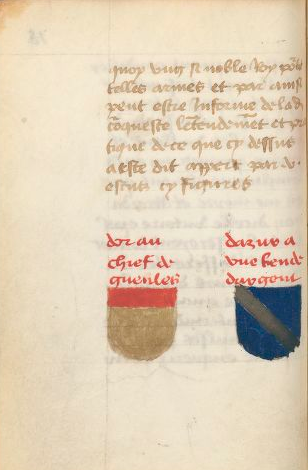 quoy ung si noble Roy porte
telles armes et par ainsi
peut estre Informe de la d
coqueste lentendemet et pra
tique de ce que cy dessus
a este dit appert par di
escuts cy figures
dor au
chief de
gueules
dazur a
une bende
dargent